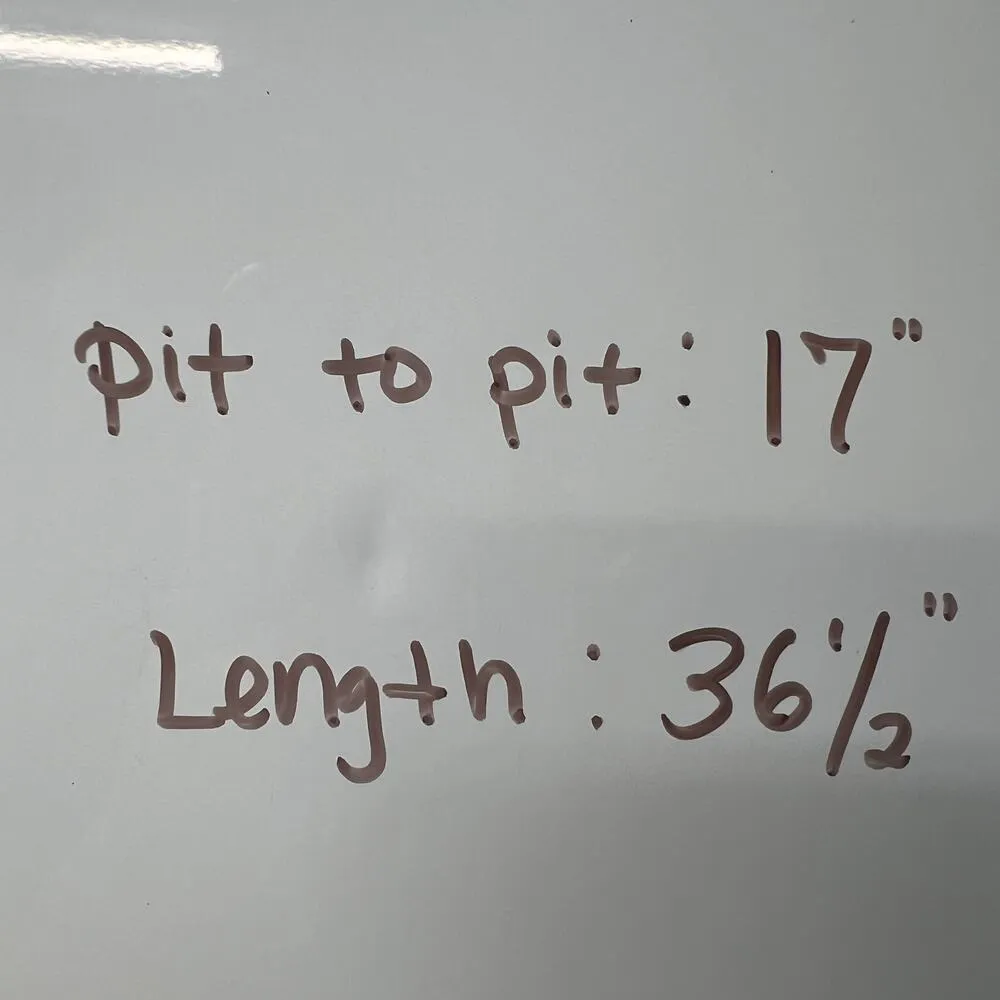 Pit to pit: 17"
Length: 36 1/2"